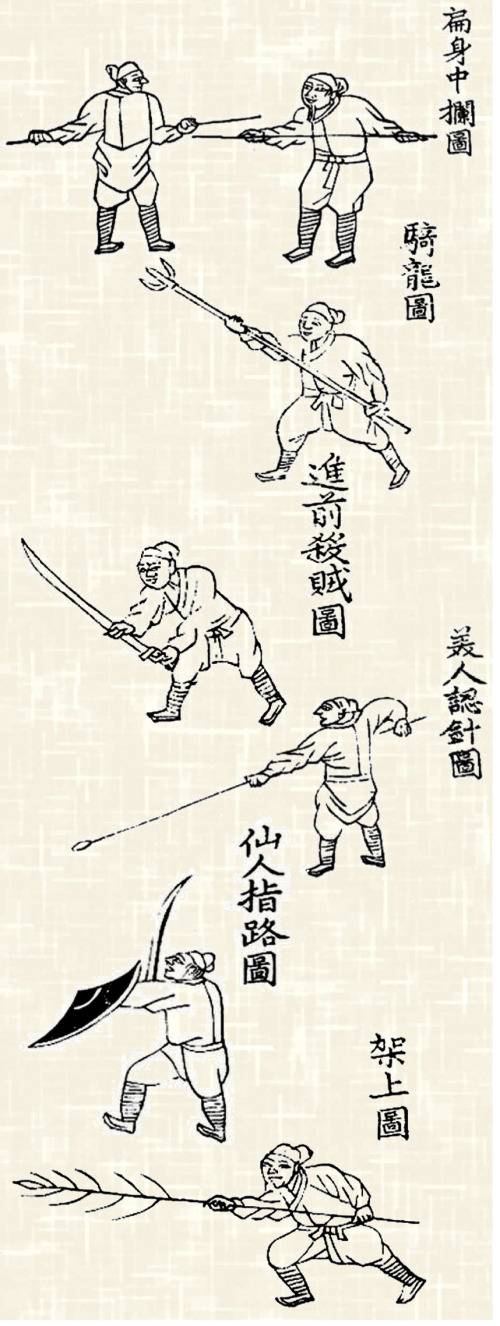 扁身中攔圖
騎龍圖
進前殺賊圖
美人認針圖
仙人指路圖
架上圖